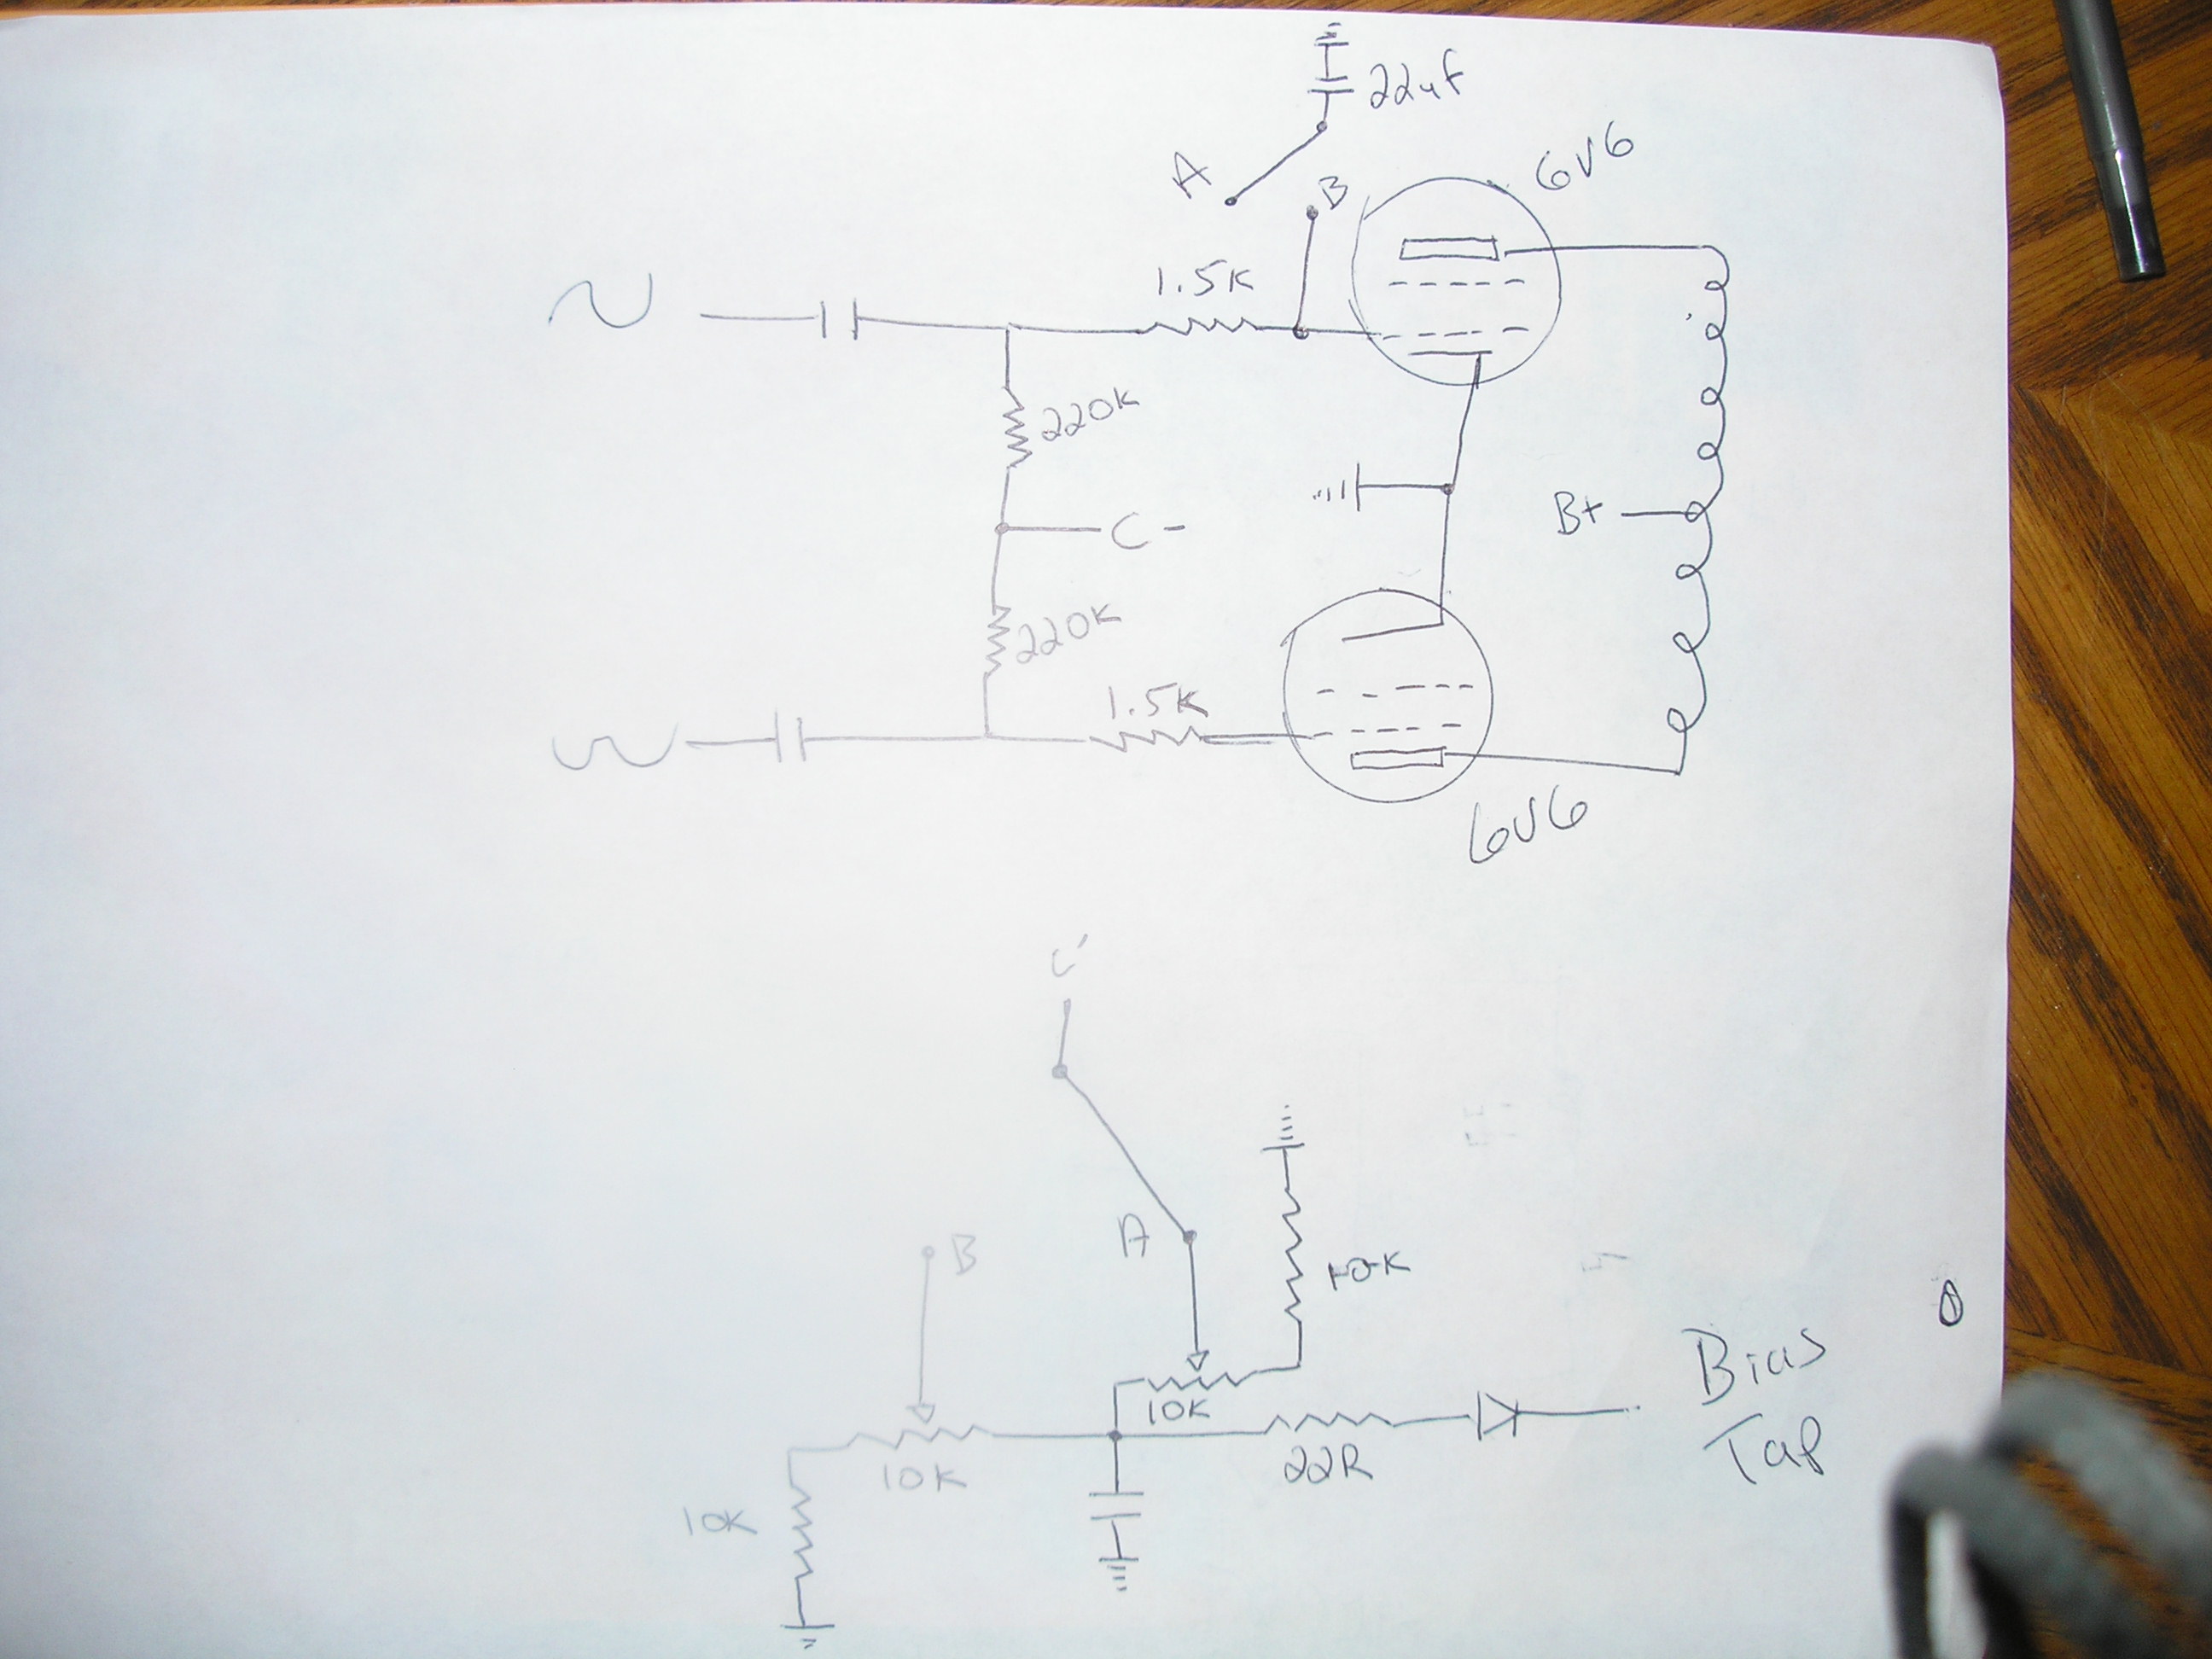 22uf
6V6
A
B
1.5K
220K
C -
B+
220K
1.5K
6V6
A
B
10K
10K
Bias
Tap
10K
22R
10K